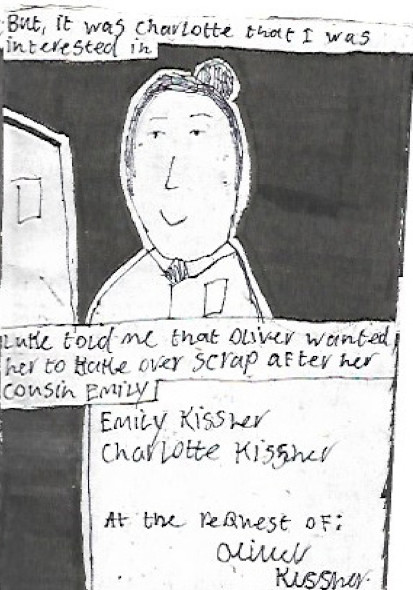 But, it was Charlotte that I was
interested in
Luke told me that Oliver wanted
her to take over scrap after her
cousin Emily
Emily Kissner
Charlotte Kissner
At the request of:
Oliver
Kissner